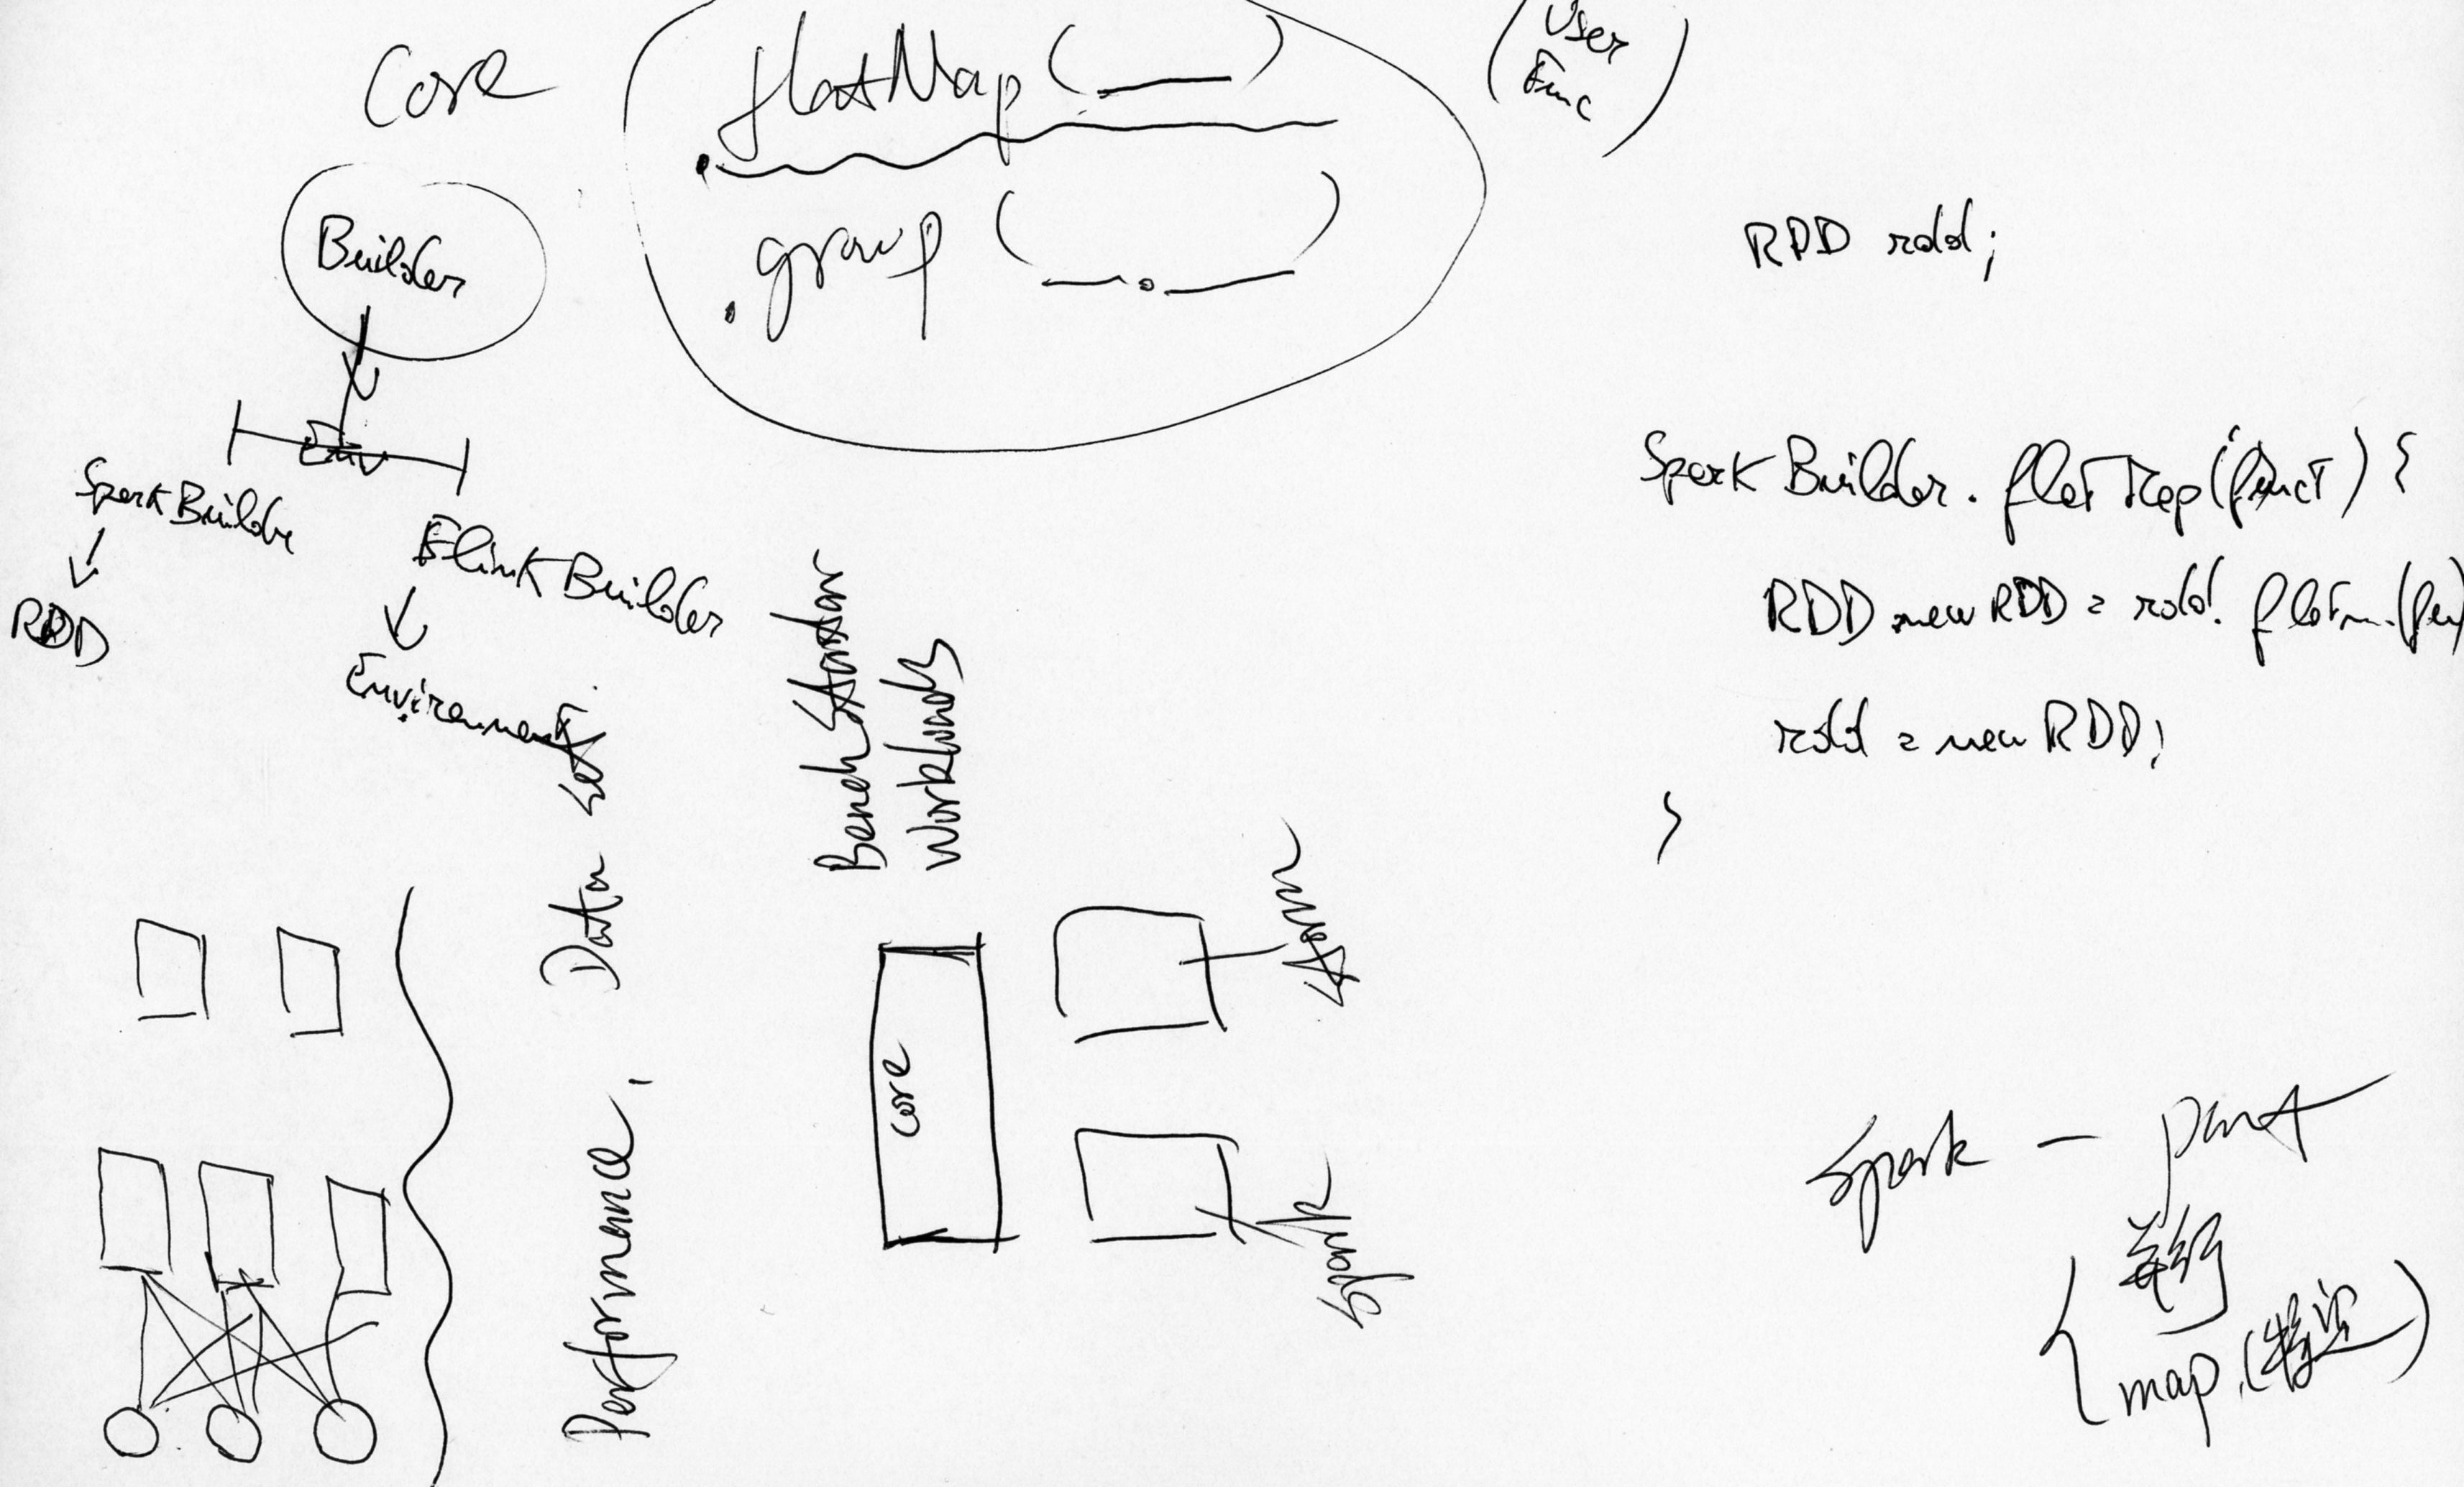 Core
.flatMap(____)
.group(__.__)
(User
Func)
Builder
Env
SparkBuilder
FlinkBuilder
RDD
Environment
RDD rdd;
SparkBuilder.flatMap(funct){
RDD newRDD = rdd.flatm.(fu)
rdd = newRDD;
}
Performance, Data set
Bench Standar
Workloads
core
Storm
Spark
Spark — part
map.(